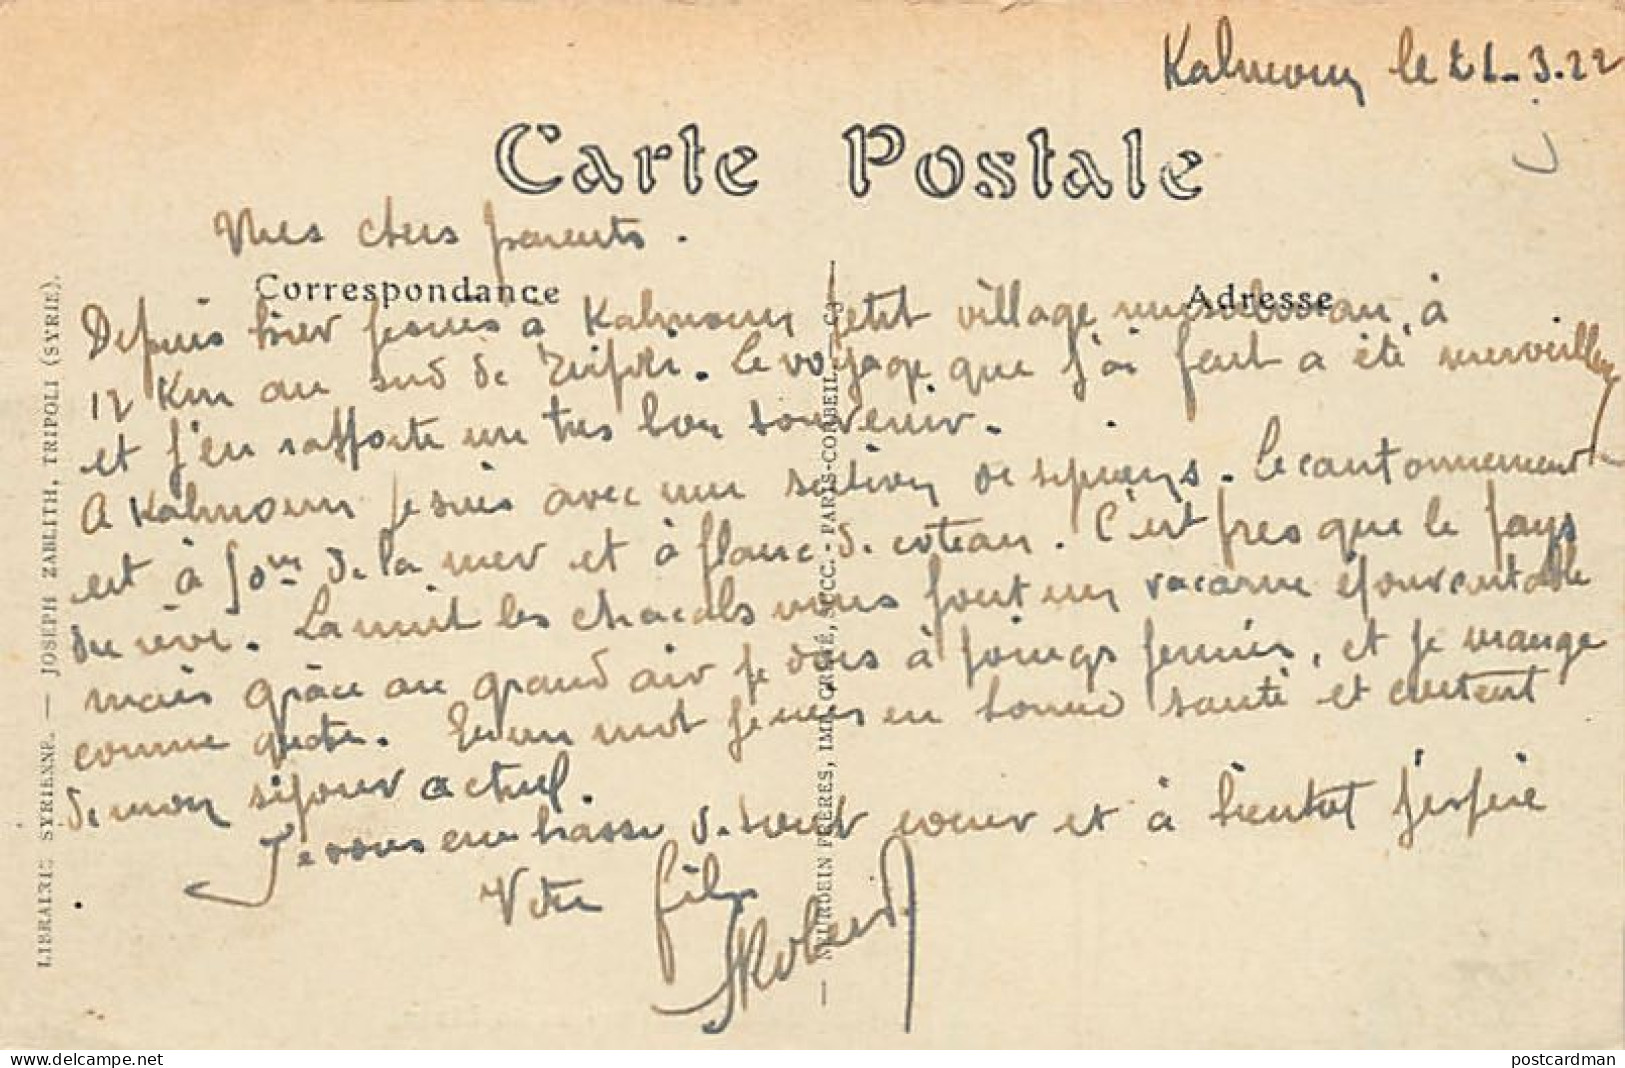 Kalmoun le 21-3-22
Carte Postale
Mes chers parents.
Correspondance
Adresse
Depuis hier je suis à Kalmoun petit village musulman, à
12 Km au sud de Tripoli. Le voyage que j'ai fait a été merveilleux
et j'en rapporte un très bon souvenir.
A Kalmoun je suis avec une section de spahis. Le cantonnement
est à 50m de la mer et à flanc de coteau. C'est presque le pays
du rêve. La nuit les chacals nous font un vacarme épouvantable
mais grâce au grand air je dors à poings fermés, et je mange
comme quatre. En un mot je suis en bonne santé et content
de mon séjour actuel.
Je vous embrasse de tout cœur et à bientôt j'espère
Votre fils
Robert
LIBRAIRIE SYRIENNE. — JOSEPH ZABLITH, TRIPOLI (SYRIE).
— NEURDEIN FRÈRES, IMP. CRÉTÉ, SUCC. - PARIS-CORBEIL.
https://www.delcampe.net
postcardman